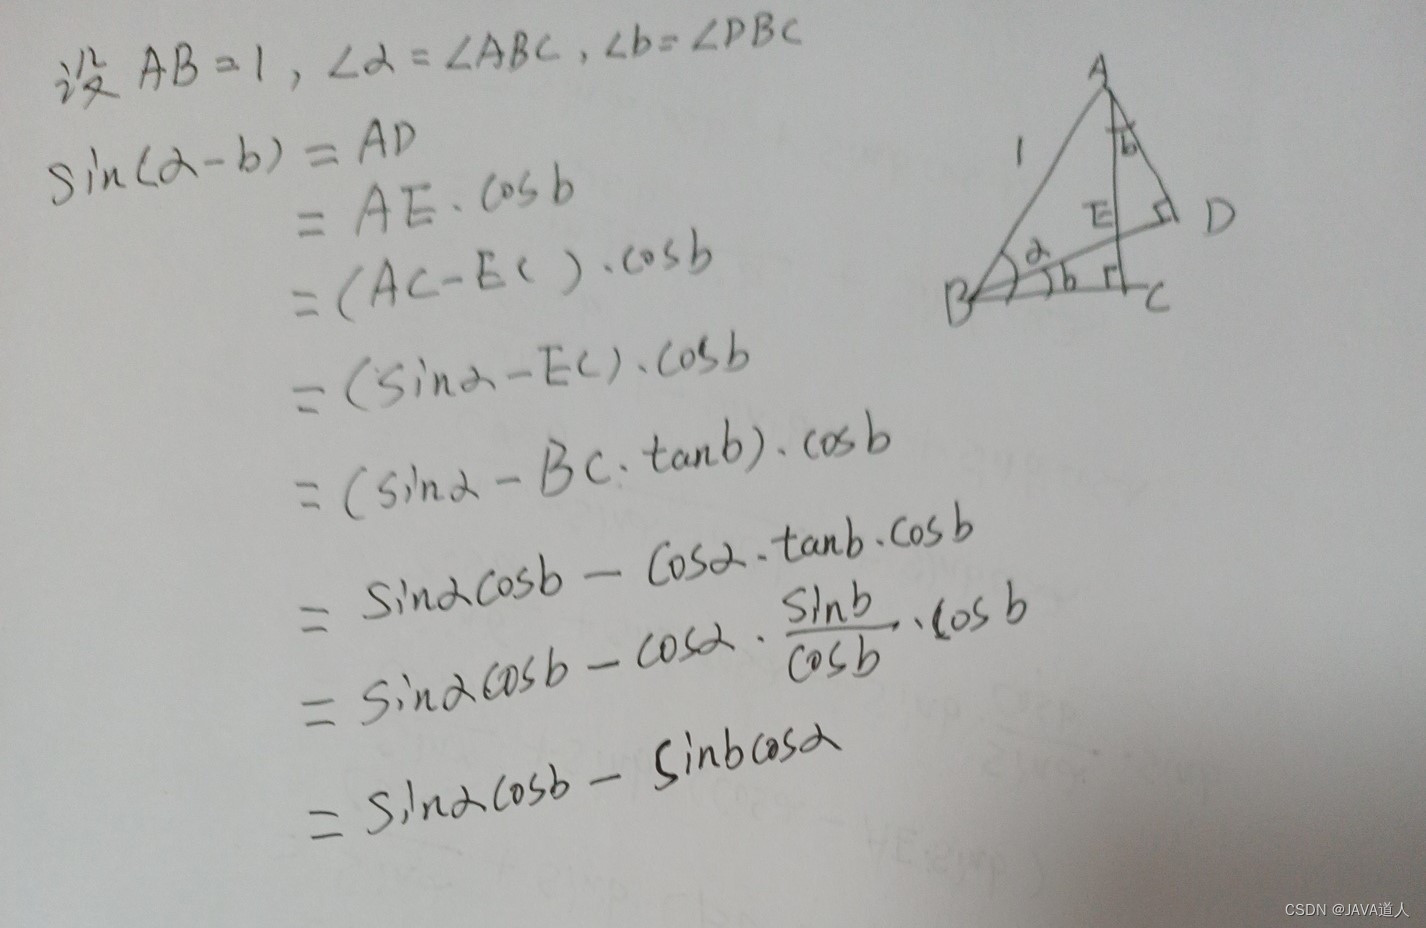 设 AB=1, ∠α=∠ABC, ∠b=∠DBC
sin(α-b) = AD
= AE·cosb
= (AC-EC)·cosb
= (sinα-EC)·cosb
= (sinα-BC·tanb)·cosb
= sinαcosb - cosα·tanb·cosb
= sinαcosb - cosα·sinb/cosb·cosb
= sinαcosb - sinbcosα
A
1
b
E
D
α
B
b
C
CSDN @JAVA道人